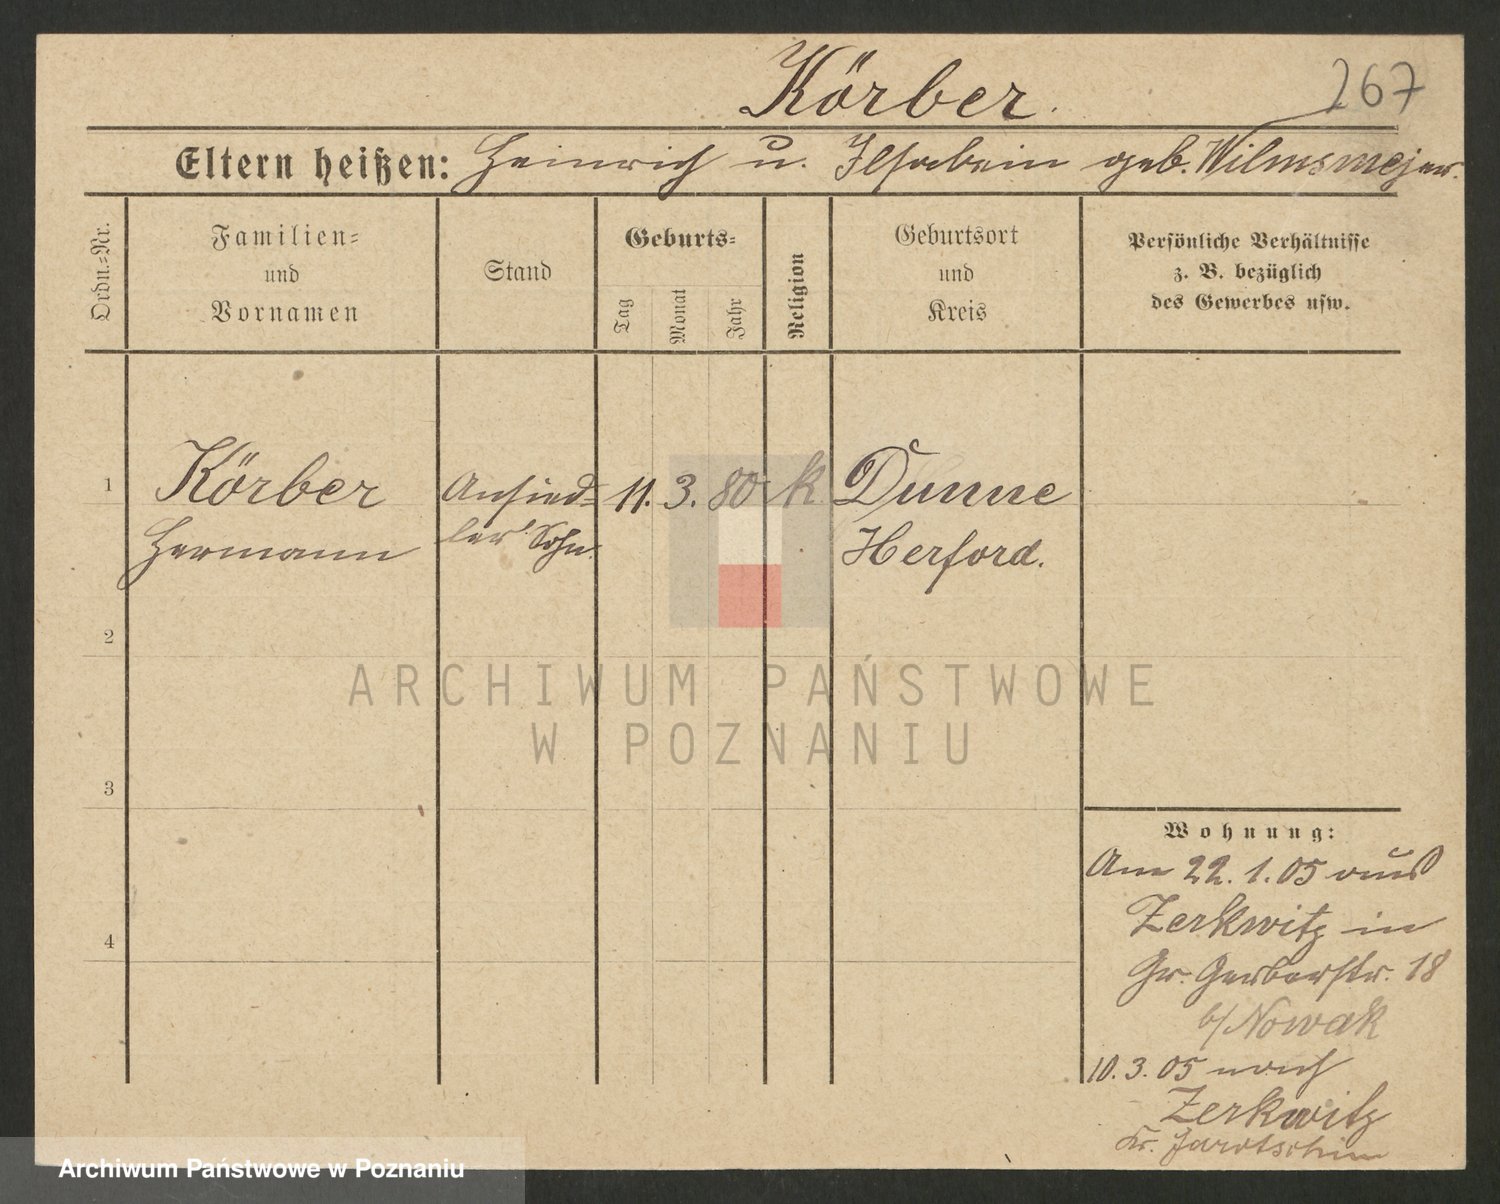 267
Körber.
Eltern heißen: Heinrich u. Ilsabein geb. Wilmsmejer.
Ordn.-Nr.
Familien-
und
Vornamen
Stand
Geburts-
Tag
Monat
Jahr
Religion
Geburtsort
und
Kreis
Persönliche Verhältnisse
z. B. bezüglich
des Gewerbes usw.
1 Körber Ansied- 11. 3. 80 k Dunne
Hermann ler Sohn. Herford.
2
3
4
Wohnung:
Am 22. 1. 05 aus
Zerkwitz in
Gr. Gerberstr. 18
b/ Nowak
10. 3. 05 nach
Zerkwitz
Kr. Jarotschin
ARCHIWUM PAŃSTWOWE
W POZNANIU
Archiwum Państwowe w Poznaniu